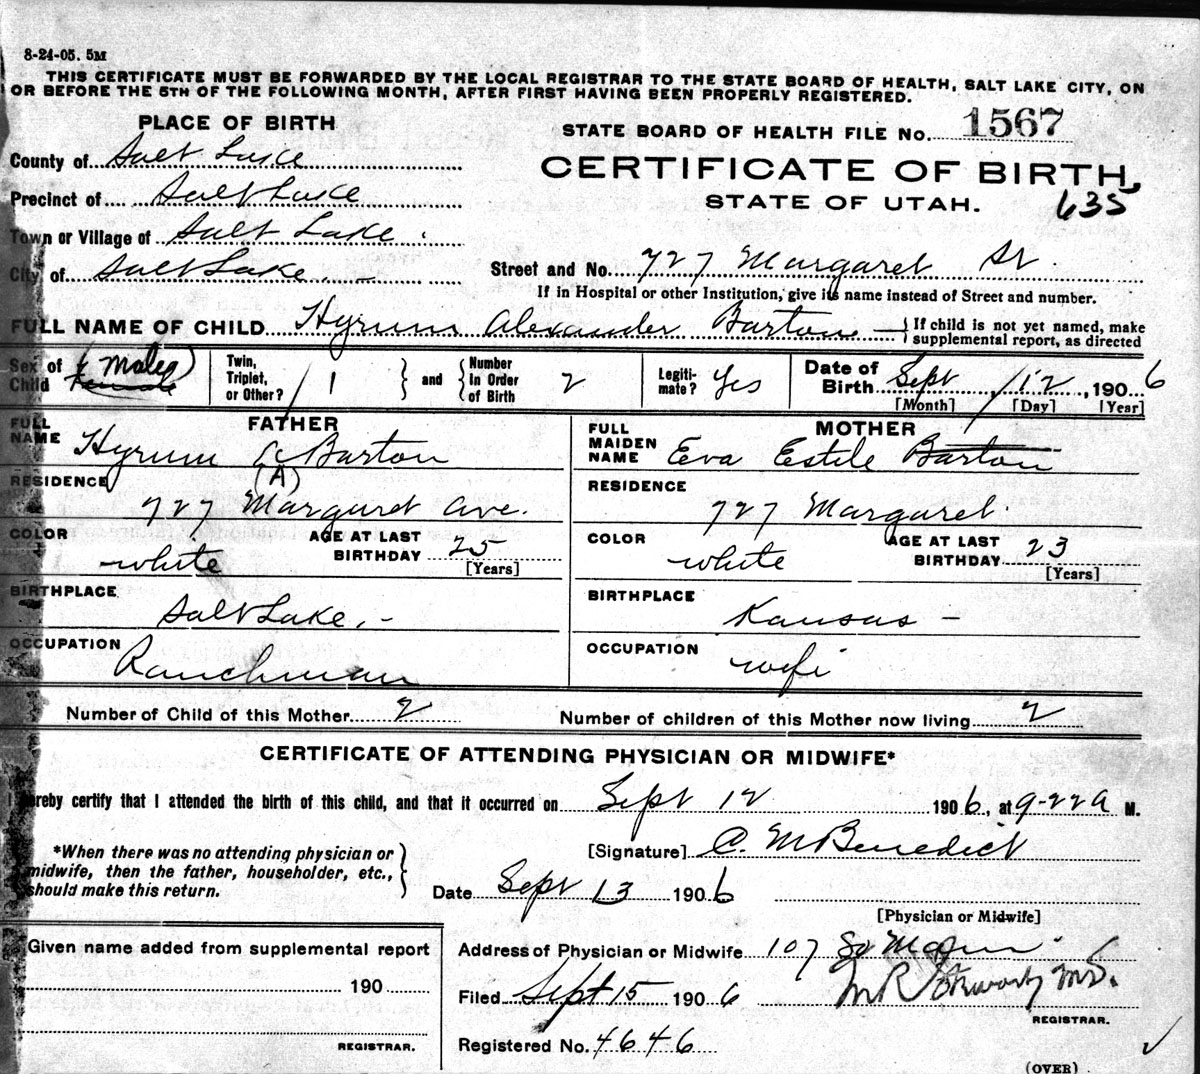 8-24-05. 5M
THIS CERTIFICATE MUST BE FORWARDED BY THE LOCAL REGISTRAR TO THE STATE BOARD OF HEALTH, SALT LAKE CITY, ON
OR BEFORE THE 5TH OF THE FOLLOWING MONTH, AFTER FIRST HAVING BEEN PROPERLY REGISTERED.
PLACE OF BIRTH
County of Salt Lake
Precinct of Salt Lake
Town or Village of Salt Lake
City of Salt Lake
STATE BOARD OF HEALTH FILE No. 1567
CERTIFICATE OF BIRTH
STATE OF UTAH. 635
Street and No. 727 Margaret St.
If in Hospital or other Institution, give its name instead of Street and number.
FULL NAME OF CHILD Hyrum Alexander Barton { If child is not yet named, make
supplemental report, as directed
Sex of Child (Male) Female
Twin, Triplet, or Other? 1 } and { Number In Order of Birth 2
Legiti-mate? Yes
Date of Birth Sept 12, 1906
[Month] [Day] [Year]
FATHER
FULL NAME Hyrum A Barton
(A)
RESIDENCE
727 Margaret Ave.
COLOR white
AGE AT LAST BIRTHDAY 25
[Years]
BIRTHPLACE
Salt Lake. -
OCCUPATION
Ranchman
MOTHER
FULL MAIDEN NAME Eva Estile Barton
RESIDENCE
727 Margaret.
COLOR white
AGE AT LAST BIRTHDAY 23
[Years]
BIRTHPLACE
Kansas -
OCCUPATION
wife
Number of Child of this Mother 2
Number of children of this Mother now living 2
CERTIFICATE OF ATTENDING PHYSICIAN OR MIDWIFE*
I hereby certify that I attended the birth of this child, and that it occurred on Sept 12 1906, at 9-22 a M.
*When there was no attending physician or
midwife, then the father, householder, etc.,
should make this return.
[Signature] C. M Benedict
Date Sept 13 1906
[Physician or Midwife]
Given name added from supplemental report
190
REGISTRAR.
Address of Physician or Midwife 107 So Main
Filed Sept 15 1906 M R M.D.
REGISTRAR.
Registered No. 4646
(OVER)